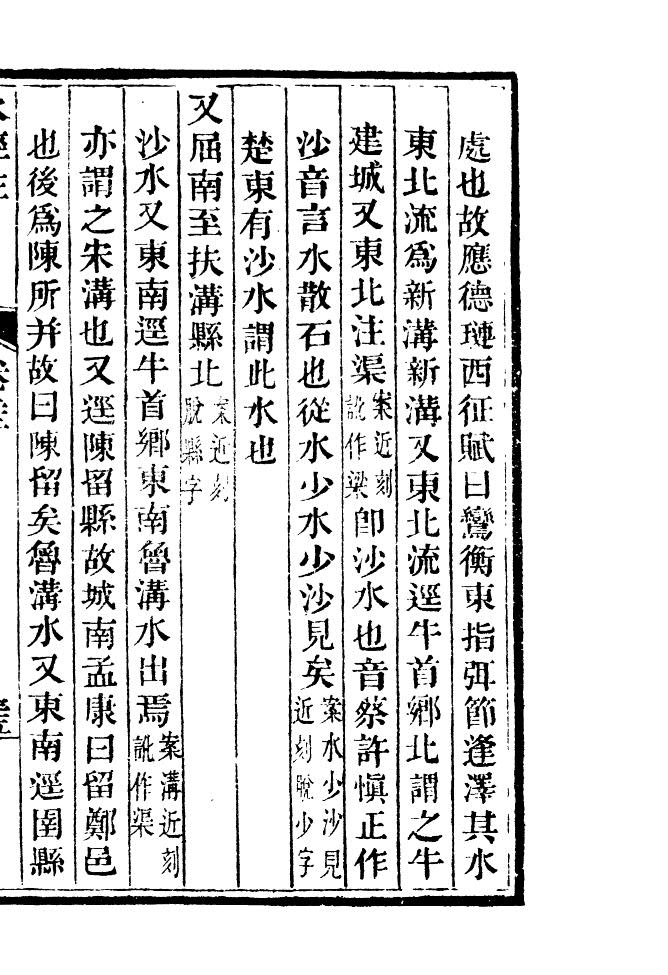 處也故應德璉西征賦曰鸞衡東指弭節逢澤其水
東北流爲新溝新溝又東北流逕牛首鄉北謂之牛
建城又東北注渠案近刻訛作梁卽沙水也音蔡許愼正作
沙音言水散石也從水少水少沙見矣案水少沙見近刻脫少字
楚東有沙水謂此水也
又屈南至扶溝縣北案近刻脫縣字
沙水又東南逕牛首鄉東南魯溝水出焉案溝近刻訛作渠
亦謂之宋溝也又逕陳留縣故城南孟康曰留鄭邑
也後爲陳所并故曰陳留矣魯溝水又東南逕圉縣
水經注